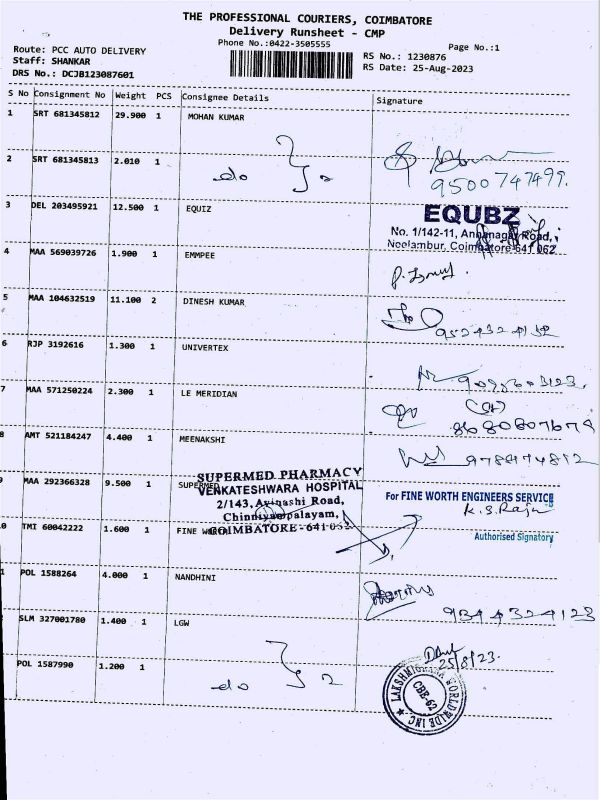 THE PROFESSIONAL COURIERS, COIMBATORE
Delivery Runsheet - CMP
Phone No.:0422-3505555
Page No.:1
Route: PCC AUTO DELIVERY
Staff: SHANKAR
DRS No.: DCJB123087601
RS No.: 1230876
RS Date: 25-Aug-2023
S No Consignment No Weight PCS Consignee Details Signature
1 SRT 681345812 29.900 1 MOHAN KUMAR
2 SRT 681345813 2.010 1 do } 2
9500747499.
3 DEL 203495921 12.500 1 EQUIZ
EQUBZ
No. 1/142-11, Annanagar Road,
Neelambur, Coimbatore-641 062
4 MAA 569039726 1.900 1 EMMPEE
5 MAA 104632519 11.100 2 DINESH KUMAR
6 RJP 3192616 1.300 1 UNIVERTEX
7 MAA 571250224 2.300 1 LE MERIDIAN
8680807679
8 AMT 521184247 4.400 1 MEENAKSHI
9 MAA 292366328 9.500 1 SUPERMED
SUPERMED PHARMACY
VENKATESHWARA HOSPITAL
2/143, Avinashi Road,
Chinniyampalayam,
COIMBATORE - 641 062
For FINE WORTH ENGINEERS SERVICE
K.S.Raju
Authorised Signatory
0 TMI 60042222 1.600 1 FINE
1 POL 1588264 4.000 1 NANDHINI
9344324123
SLM 327001780 1.400 1 LGW
25/8/23.
POL 1587990 1.200 1 do } 2
WORLDWIDE INC
CBE-62